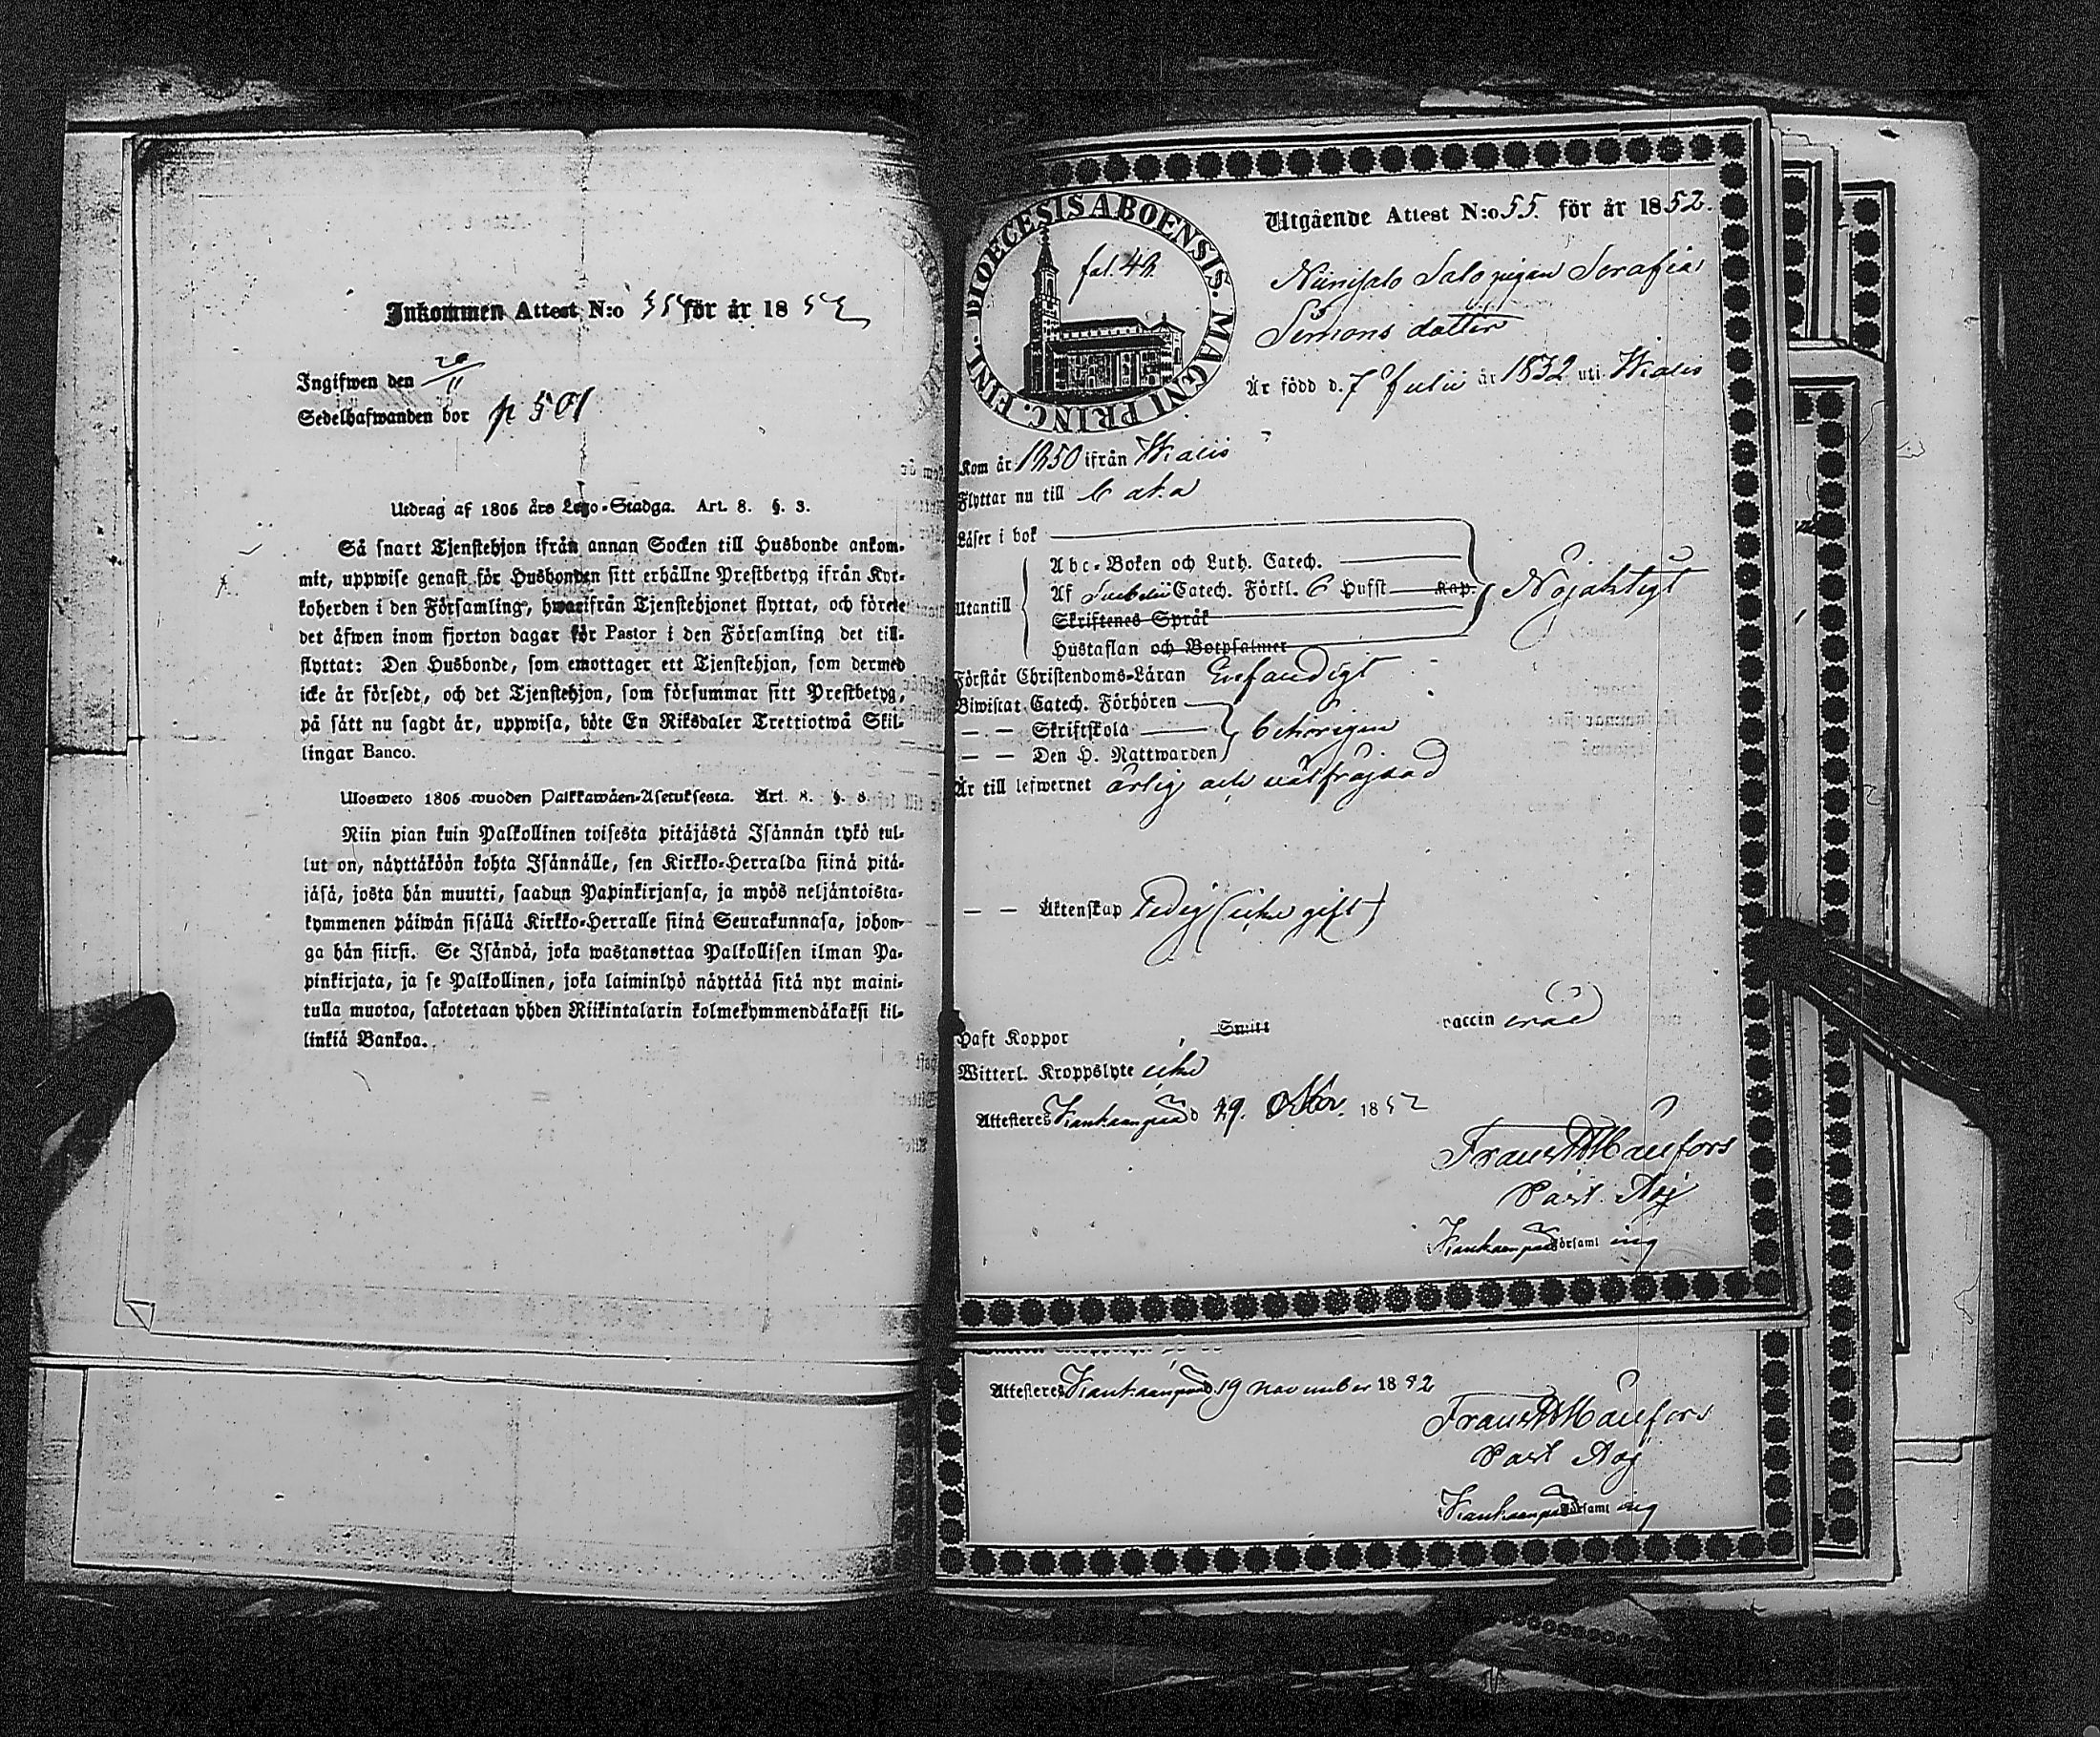 Inkommen Attest N:o för år 18 52
Ingifwen den 20/11
Sedelhafwanden bor p 501
Utdrag af 1805 års Lego-Stadga. Art. 8. §. 3.
Så snart Tjenstehjon ifrån annan Socken till Husbonde ankom-
mit, uppwise genast för Husbonden sitt erhållne Prestbetyg ifrån Kyr-
koherden i den Församling, hwarifrån Tjenstehjonet flyttat, och förete
det äfwen inom fjorton dagar för Pastor i den Församling det till-
flyttat: Den Husbonde, som emottager ett Tjenstehjon, som dermed
icke är försedt, och det Tjenstehjon, som försummar sitt Prestbetyg,
på sätt nu sagdt är, uppwisa, böte En Riksdaler Trettiotwå Skil-
lingar Banco.
Ulosweto 1805 wuoden Palkkawäen-Asetuksesta. Art. 8. §. 3.
Niin pian kuin Palkollinen toisesta pitäjästä Isännän tykö tul-
lut on, näyttäköön kohta Isännälle, sen Kirkko-Herralda siinä pitä-
jäsä, josta hän muutti, saadun Papinkirjansa, ja myös neljäntoista-
kymmenen päiwän sisällä Kirkko-Herralle siinä Seurakunnasa, johon-
ga hän siirsi. Se Isändä, joka wastanottaa Palkollisen ilman Pa-
pinkirjata, ja se Palkollinen, joka laiminlyö näyttää sitä nyt maini-
tulla muotoa, sakotetaan yhden Riikintalarin kolmekymmendäkaksi kil-
linkiä Bankoa.
DIOECESIS ABOENSIS. MAGNI PRINC. FINL.
fol. 42
Utgående Attest N:o 55. för år 1852.
Niinisalo Salo pigan Serafia
Simons dotter
Är född d. 7 Julii år 1832 uti
Kom år 1850 ifrån
Flyttar nu till
Läser i bok
Abc-Boken och Luth. Catech.
Utantill Af Svebelii Catech. Förkl. 6 Hufst Kap.
Nöjaktigt
Skriftenes Språk
Hustaflan och Botpsalmer
Förstår Christendoms-Läran Enfaldigt
Biwistat Catech. Förhören
— — Skriftskola
behörigen
— — Den H. Nattwarden
Är till lefwernet ärlig och välfräjdad
— — Äktenskap Ledig (icke gift)
Haft Koppor Smitt vaccin
Witterl. Kroppslyte icke
Attesteres Kankaanpää d 19. Nov. 1852
Frans Manfors
Past. Adj
i Kankaanpää Församling
Attesteres Kankaanpää d. 19 november 1852
Frans Manfors
Past Adj
i Kankaanpää Församling